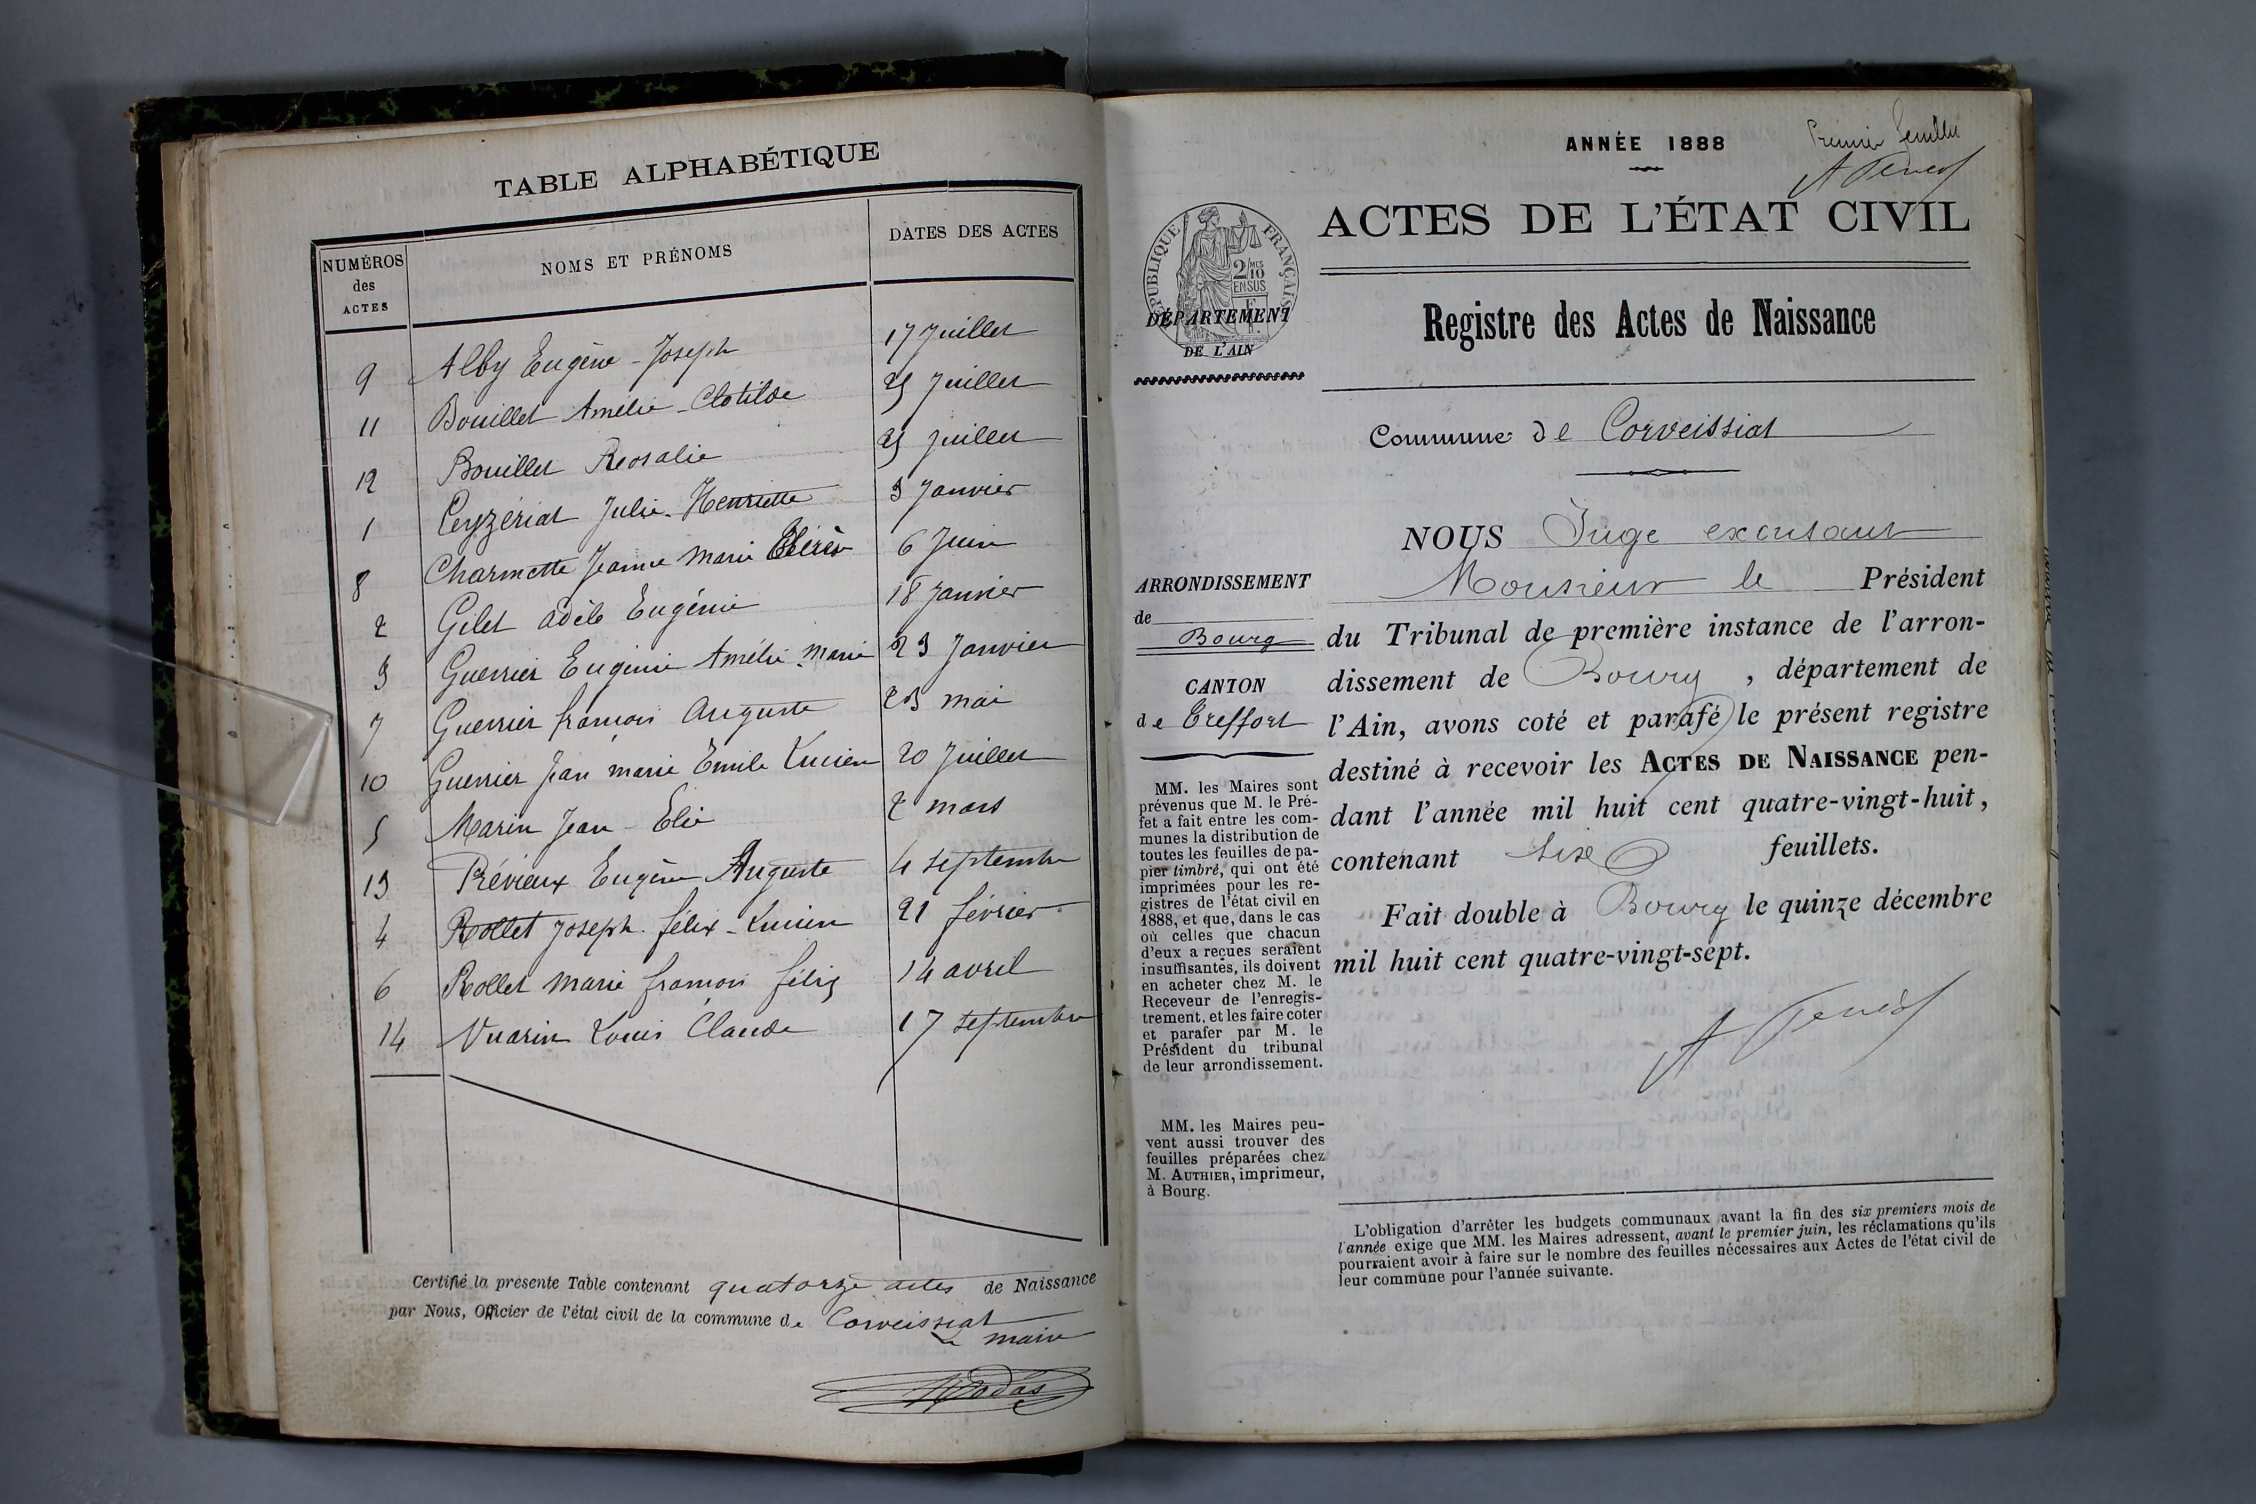 TABLE ALPHABÉTIQUE
NUMÉROS des ACTES
NOMS ET PRÉNOMS
DATES DES ACTES
9 Alby Eugène - Joseph 17 Juillet
11 Bouillet Amélie - Clotilde 25 Juillet
12 Bouillet Rosalie 25 juillet
1 Ceyzériat Julie - Henriette 3 Janvier
8 Charmette Jeanne Marie 6 Juin
2 Gilet adèle Eugénie 18 Janvier
3 Guerrier Eugénie Amélie Marie 23 Janvier
7 Guerrier françois Auguste 23 mai
10 Guerrier Jean marie Emile Lucien 20 Juillet
5 Marin Jean - Elie 2 mars
13 Prévieux Eugène Auguste 4 septembre
4 Rollet Joseph félix - Lucien 21 février
6 Rollet marie françois félix 14 avril
14 Vuarin Louis Claude 17 septembre
Certifié la présente Table contenant quatorze actes de Naissance
par Nous, Officier de l'état civil de la commune de Corveissiat
Le maire
ANNÉE 1888
Premier feuillet
ACTES DE L'ÉTAT CIVIL
RÉPUBLIQUE FRANÇAISE
2/10 MES
EN SUS
DÉPARTEMENT
DE L'AIN
Registre des Actes de Naissance
Commune de Corveissiat
NOUS Juge excusant
Monsieur le Président
du Tribunal de première instance de l'arron-
dissement de Bourg, département de
l'Ain, avons coté et parafé le présent registre
destiné à recevoir les ACTES DE NAISSANCE pen-
dant l'année mil huit cent quatre-vingt-huit,
contenant six feuillets.
Fait double à Bourg le quinze décembre
mil huit cent quatre-vingt-sept.
ARRONDISSEMENT
de
Bourg
CANTON
de Treffort
MM. les Maires sont
prévenus que M. le Pré-
fet a fait entre les com-
munes la distribution de
toutes les feuilles de pa-
pier timbré, qui ont été
imprimées pour les re-
gistres de l'état civil en
1888, et que, dans le cas
où celles que chacun
d'eux a reçues seraient
insuffisantes, ils doivent
en acheter chez M. le
Receveur de l'enregis-
trement, et les faire coter
et parafer par M. le
Président du tribunal
de leur arrondissement.
MM. les Maires peu-
vent aussi trouver des
feuilles préparées chez
M. AUTHIER, imprimeur,
à Bourg.
L'obligation d'arrêter les budgets communaux avant la fin des six premiers mois de
l'année exige que MM. les Maires adressent, avant le premier juin, les réclamations qu'ils
pourraient avoir à faire sur le nombre des feuilles nécessaires aux Actes de l'état civil de
leur commune pour l'année suivante.